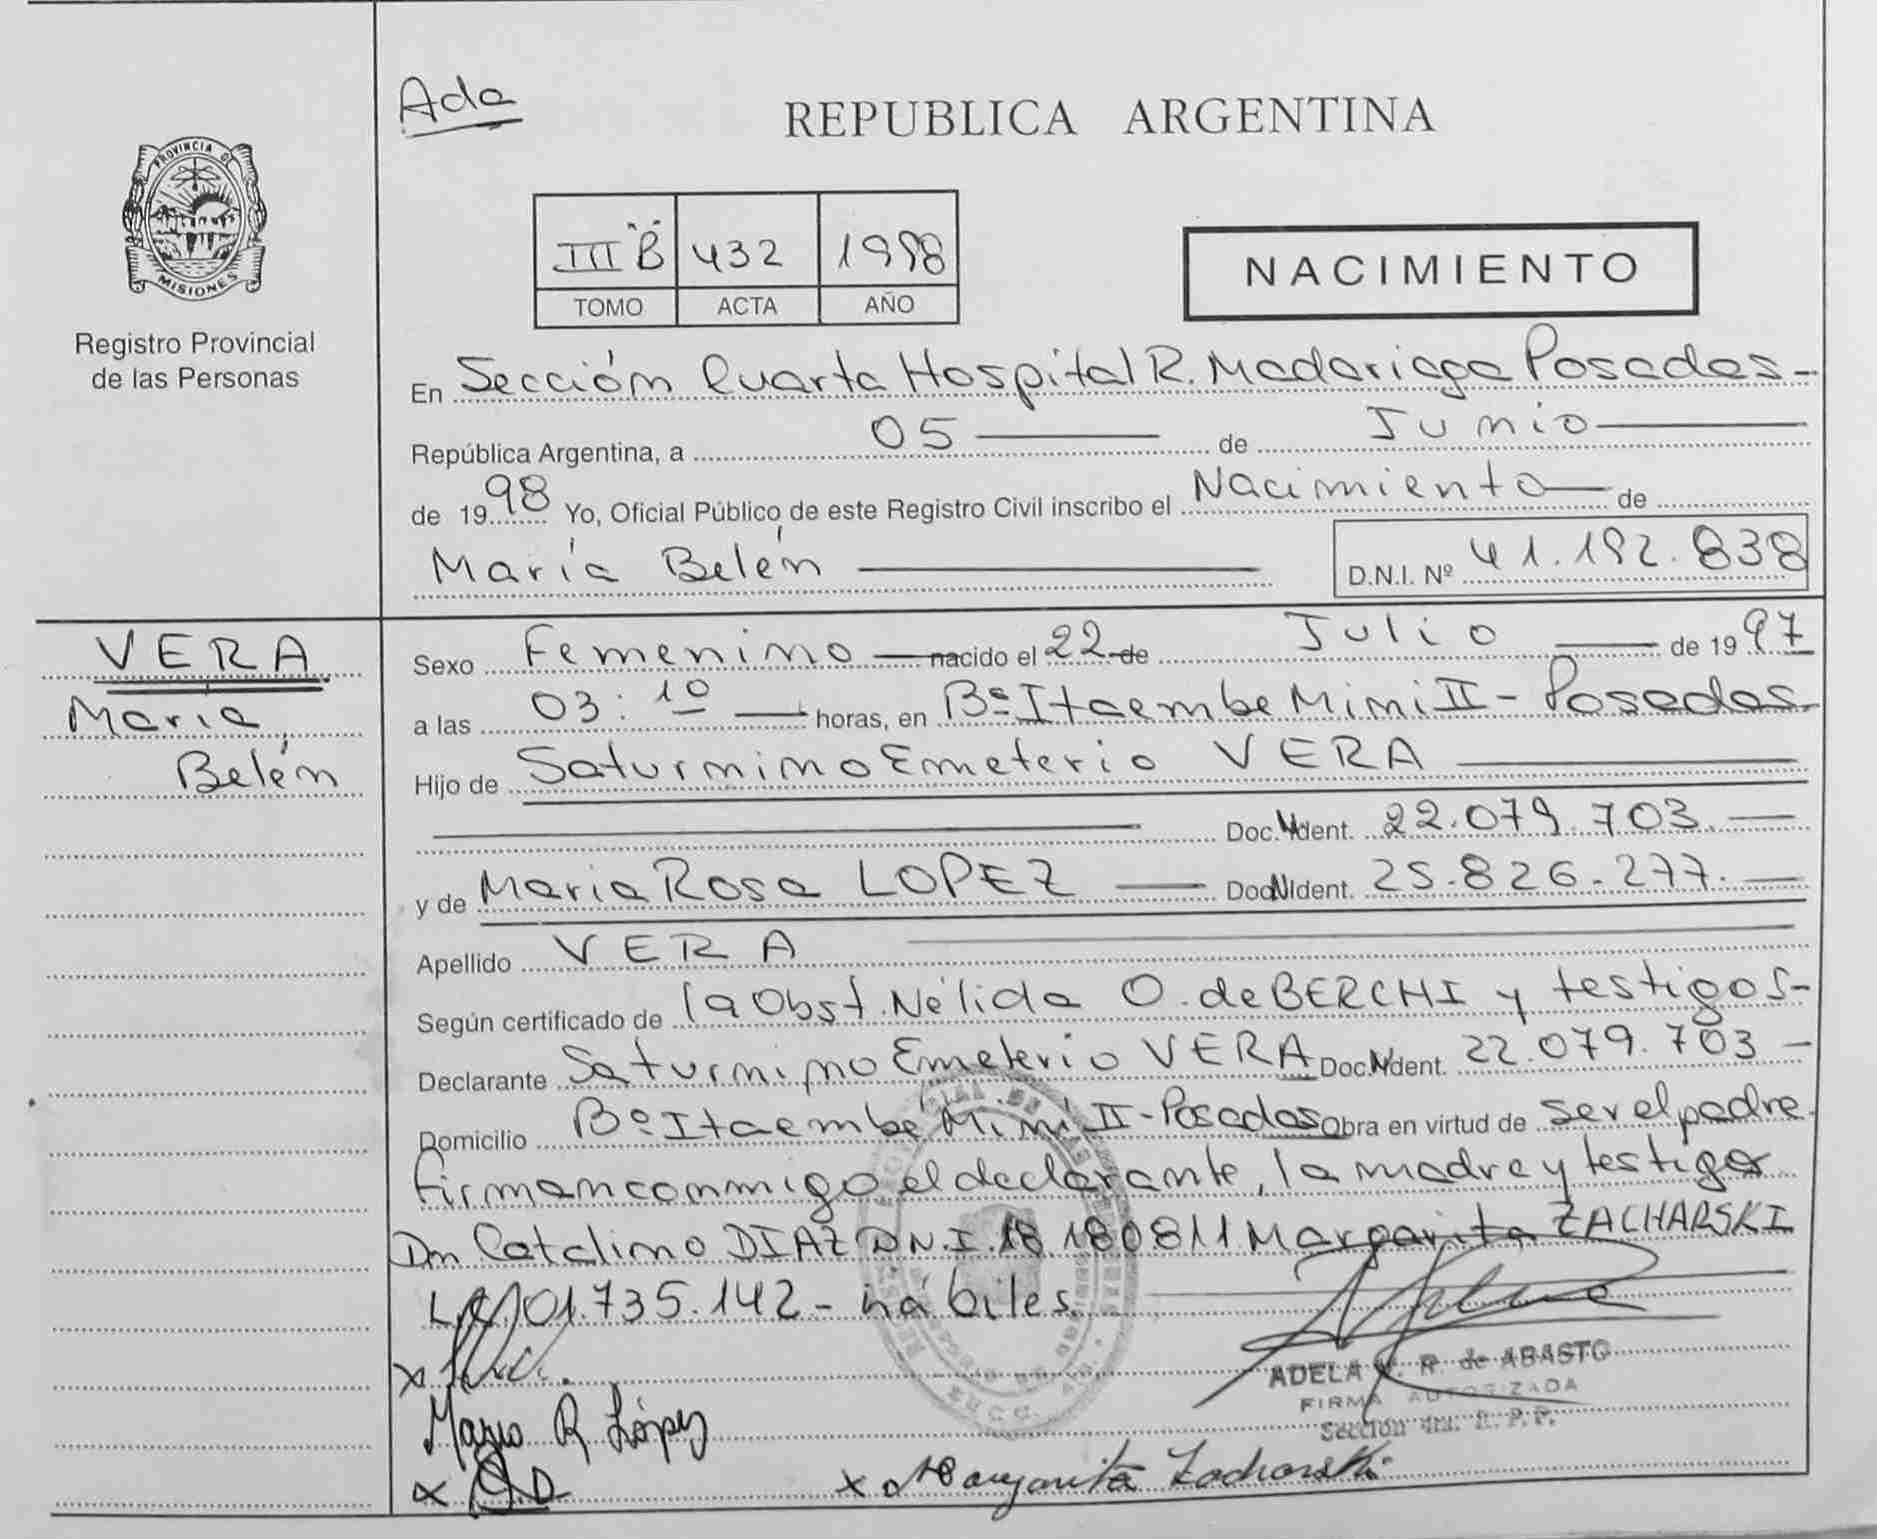 Ada
REPUBLICA ARGENTINA
PROVINCIA DE
MISIONES
Registro Provincial
de las Personas
III "B" 432 1998
TOMO ACTA AÑO
NACIMIENTO
En Sección Cuarta Hospital R. Madariaga Posadas-
República Argentina, a 05 de Junio
de 1998 Yo, Oficial Público de este Registro Civil inscribo el Nacimiento de
María Belén D.N.I. Nº 41.192.838
VERA
María
Belén
Sexo Femenino nacido el 22 de Julio de 1997
a las 03:10 horas, en Bº Itaembe Mini II - Posadas.
Hijo de Saturnino Emeterio VERA
Doc. Ident. 22.079.703.
y de Maria Rosa LOPEZ Doc. Ident. 25.826.277.
Apellido VERA
Según certificado de la Obst. Nélida O. de BERCHI y testigos-
Declarante Saturnino Emeterio VERA Doc. Ident. 22.079.703 -
Domicilio Bº Itaembé Miní II - Posadas Obra en virtud de ser el padre.
Firman conmigo el declarante, la madre y testigos
Dn Catalino DIAZ D.N.I. 18.180811 Margarita ZACHARSKI
L.C. 01.735.142 - hábiles.
ADELA R. de ABASTO
FIRMA AUTORIZADA
Sección 4ta. R. P. P.
R López
x Margarita Zacharski